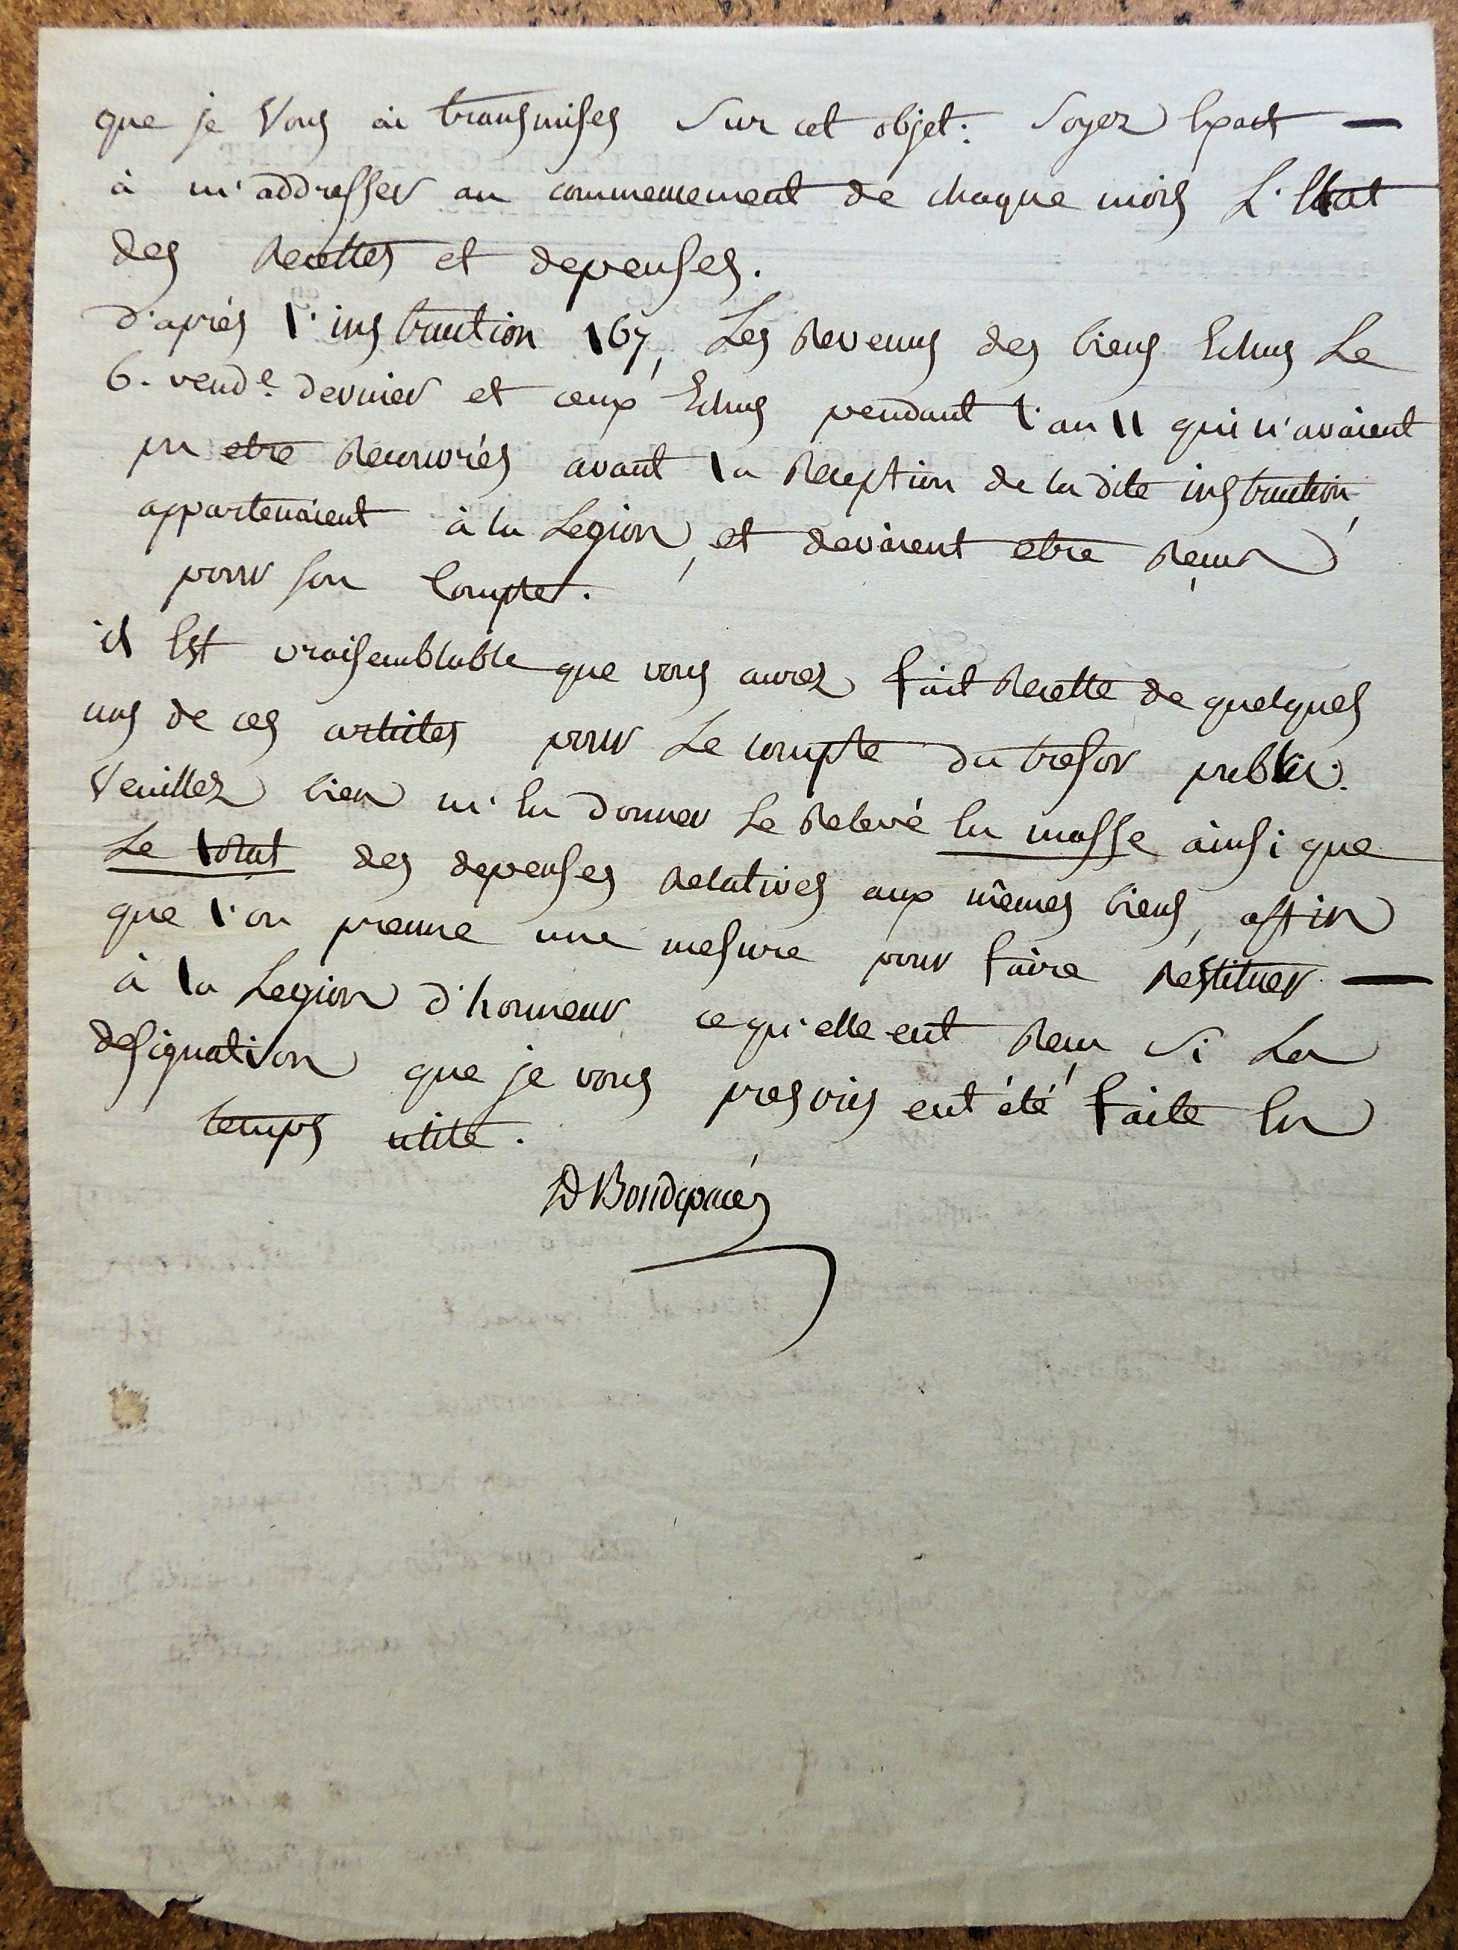 que je Vous ai transmises sur cet objet. Soyez Exact
à m'addresser au commencement de chaque mois L'Etat
des Recettes et depenses.
d'après l'instruction 167, Les Revenus des biens Echus Le
6. vend.e dernier et ceux Echus pendant l'an 11 qui n'avaient
pu etre Recouvrés avant la Reception de la dite instruction,
appartenaient à la Legion, et devaient etre Reçus
pour son Compte.
il Est vraisemblable que vous aurez fait Recette de quelques
uns de ces articles pour Le compte du tresor public.
Veuillez bien m'En donner Le Relevé En masse ainsi que
Le total des depenses Relatives aux mêmes biens, affin
que l'on prenne une mesure pour faire Restituer
à la Legion d'honneur ce qu'elle eut Reçu si La
designation que je vous prescris eut été faite En
temps utile.